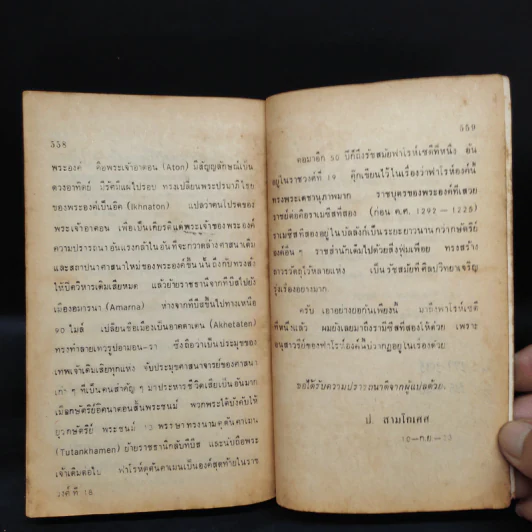 ๕๕๘
พระองค์ คือพระเจ้าอาตอน (Aton) มีสัญญลักษณ์เป็น
ดวงอาทิตย์ มีรัศมีแผ่ไปรอบ ทรงเปลี่ยนพระปรมาภิไธย
ของพระองค์เป็นอิค (Ikhnaton) แปลว่าคนโปรดของ
พระเจ้าอาตอน เพื่อเป็นเกียรติแด่พระเจ้าของพระองค์
ความปรารถนาอันแรงกล้าในอันที่จะกวาดล้างศาสนาเดิม
และสถาปนาศาสนาใหม่ของพระองค์ขึ้นนั้นถึงกับทรงสั่ง
ให้ปิดวิหารเดิมเสียหมด แล้วย้ายราชธานีจากทีบีสไปยัง
เมืองอมารนา (Amarna) ห่างจากทีบีสขึ้นไปทางเหนือ
๙๐ ไมล์ เปลี่ยนชื่อเมืองเป็นอาคตาเตน (Akhetaten)
ทรงทำลายเทวรูปอามอน-รา ซึ่งถือว่าเป็นประมุขของ
เทพเจ้าเดิมเสียทุกแห่ง จับประมุขศาสนาจารย์ของศาสนา
เก่า ๆ ที่เป็นคนสำคัญ ๆ มาประหารชีวิตเสียเป็นอันมาก
เมื่อกษัตริย์อิคนาตอนสิ้นพระชนม์ พวกพระได้บังคับให้
ยุวกษัตริย์ พระชนม์ พรรษาทรงนามตุตันคาเมน
(Tutankhamen) ย้ายราชธานีกลับทีบีส และนับถือพระ
เจ้าเดิมต่อไป ฟาโรห์ตุตันคาเมนเป็นองค์สุดท้ายในราช
วงศ์ที่ 18
๕๕๙
ต่อมาอีก 50 ปีก็ถึงรัชสมัยฟาโรห์เซตีที่หนึ่ง อัน
อยู่ในราชวงศ์ที่ 19 คุ๊กเขียนไว้ในเรื่องว่าฟาโรห์องค์นี้
ทรงพระเดชานุภาพมาก ราชบุตรของพระองค์ที่เสวย
ราชย์ต่อคือราเมซิสที่สอง (ก่อน ค.ศ. 1292 – 1225)
ราเมซิสที่สองอยู่ในบัลลังก์เป็นระยะยาวนานกว่ากษัตริย์
องค์อื่น ๆ ราชสำนักเต็มไปด้วยสิ่งฟุ่มเฟือย ทรงสร้าง
ถาวรวัตถุไว้หลายแห่ง เป็นรัชสมัยที่ศิลปวิทยาเจริญ
รุ่งเรืองอย่างมาก
ครับ เอาอย่างยอกันเพียงนี้ มาถึงฟาโรห์เซตี
ที่หนึ่งแล้ว ผมยังเลยมาถึงราเมซิสที่สองให้ด้วย เพราะ
อนุสาวรีย์ของฟาโรห์องค์นี้ปรากฏอยู่ในเรื่องด้วย
ขอได้รับความปรารถนาดีจากผู้แปลด้วย.
ป. สามโกเศศ